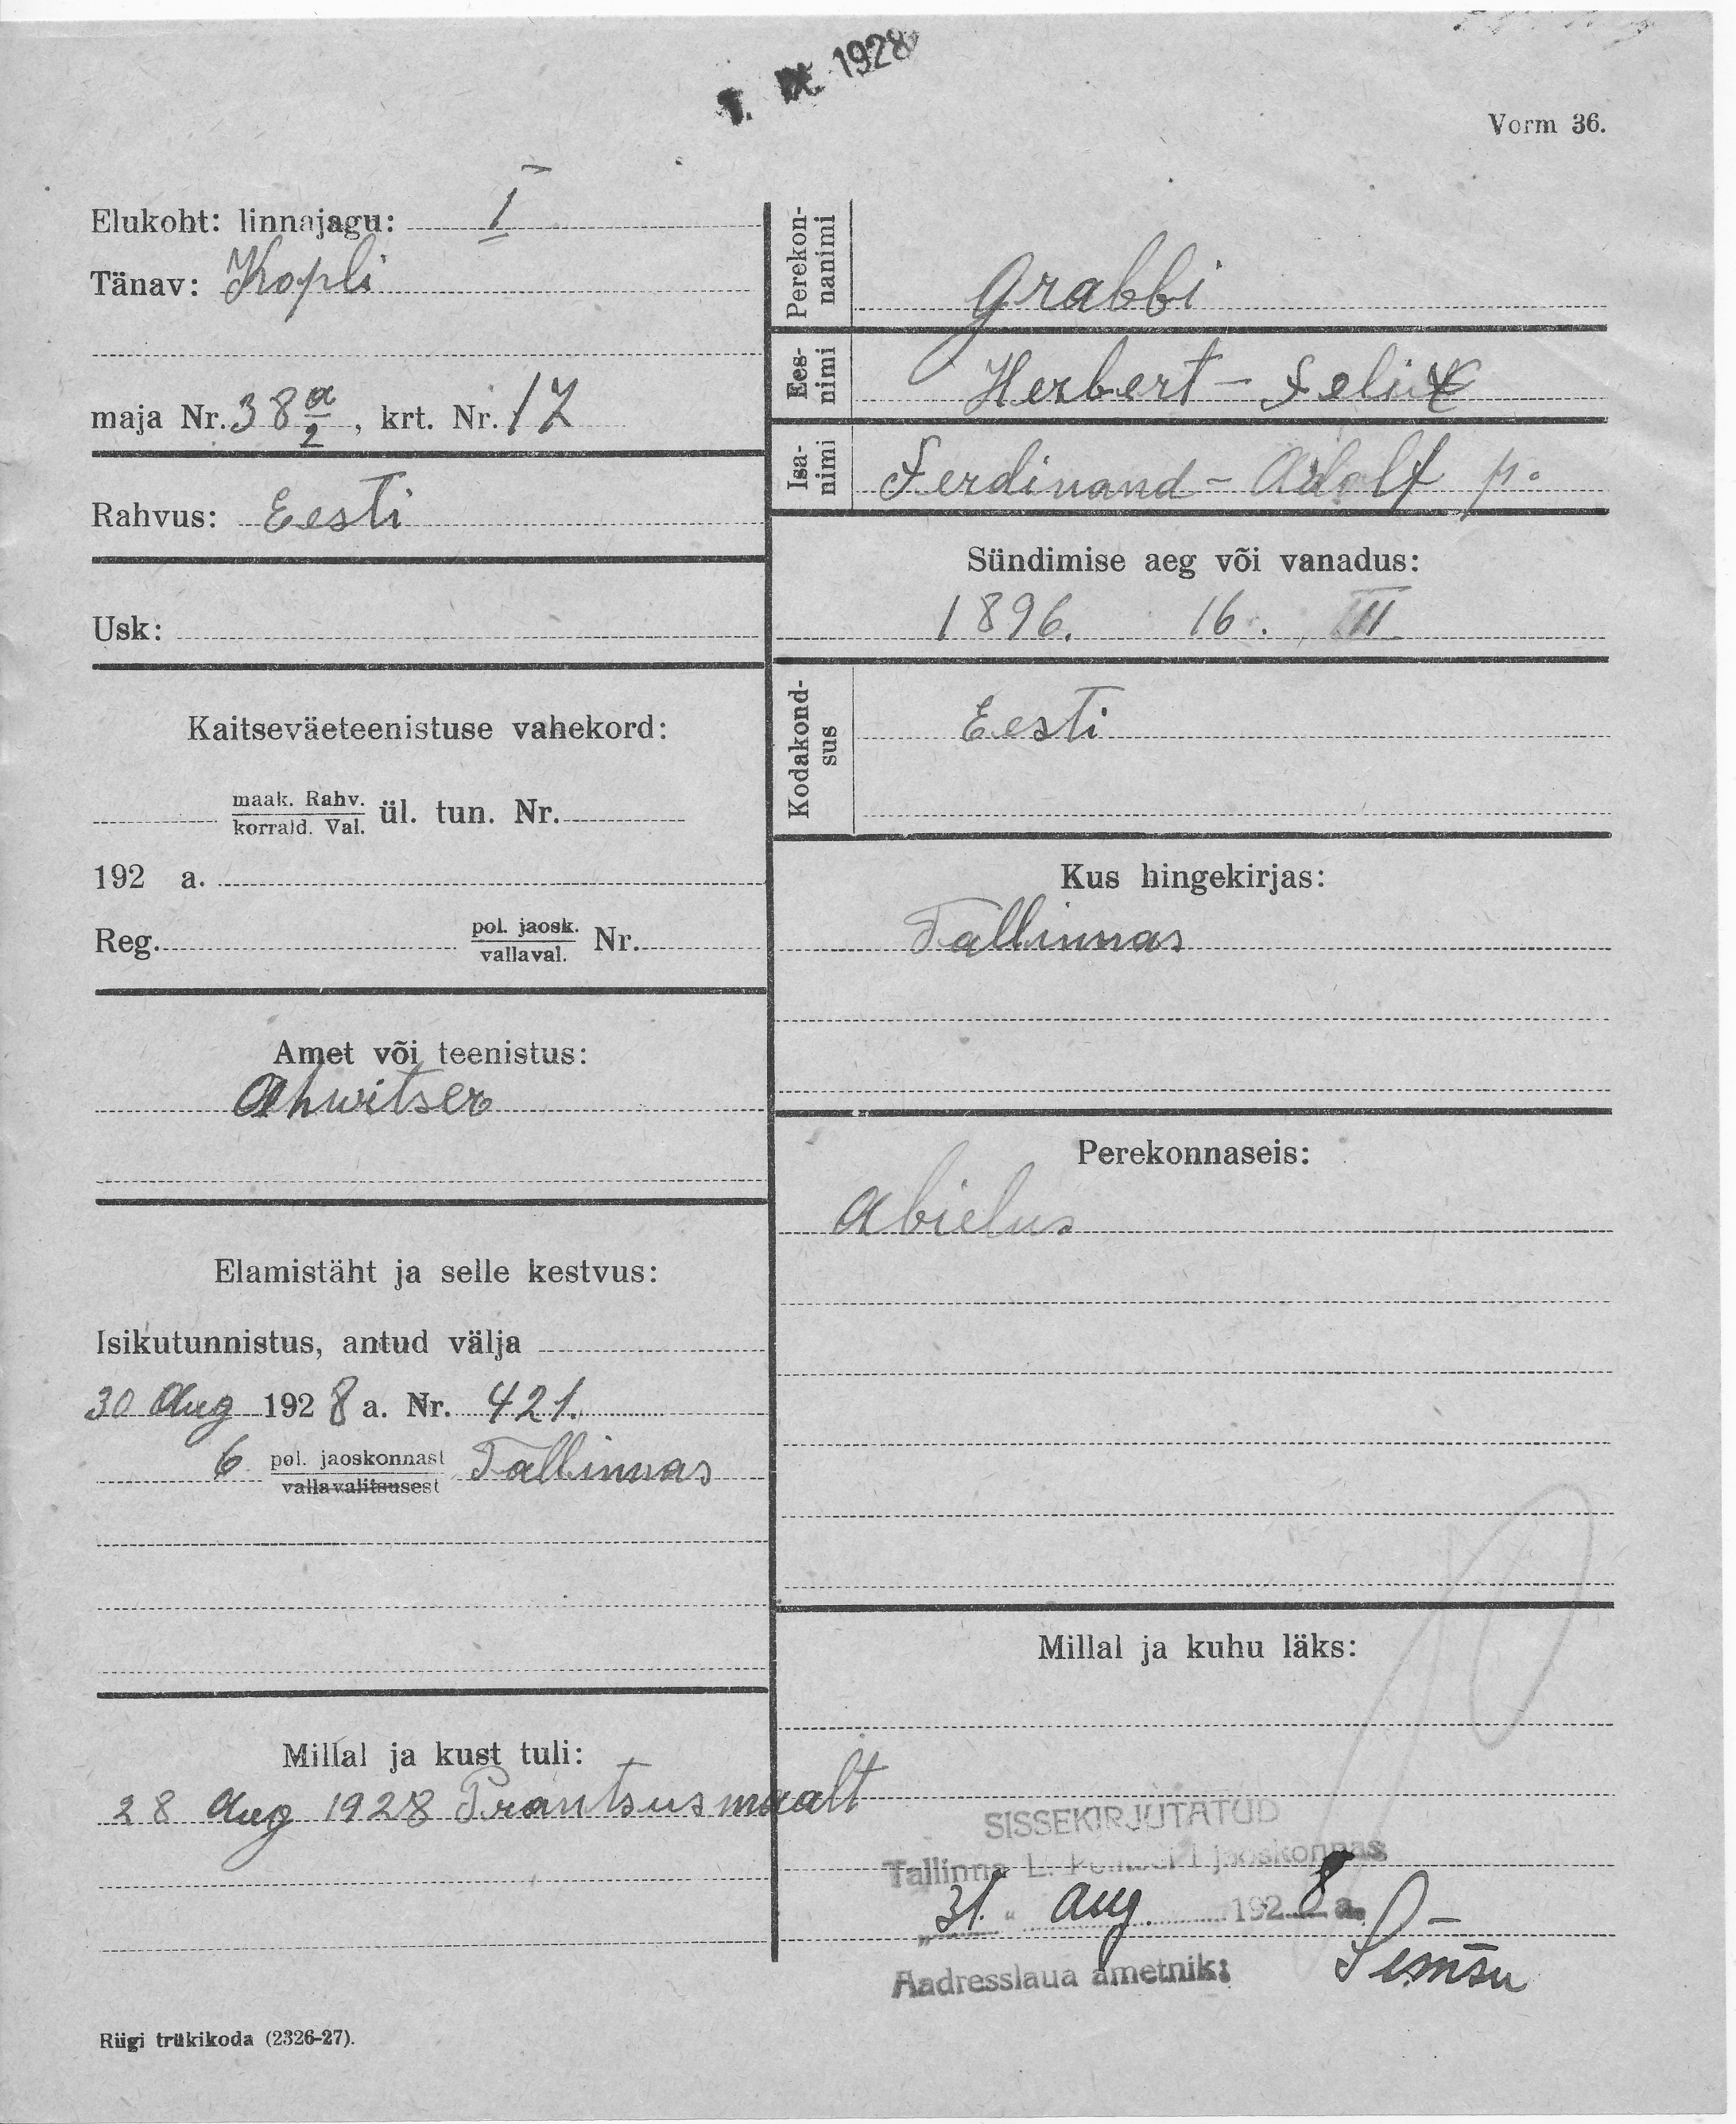 IX. 1928
Vorm 36.
Elukoht: linnajagu: I
Tänav: Kopli
maja Nr. 38 a/2, krt. Nr. 17
Rahvus: Eesti
Usk:
Kaitseväeteenistuse vahekord:
maak. Rahv.
korrald. Val. ül. tun. Nr.
192 a.
Reg. pol. jaosk.
vallaval. Nr.
Amet või teenistus:
Ohwitser
Elamistäht ja selle kestvus:
Isikutunnistus, antud välja
30 Aug 1928 a. Nr. 421.
6 pol. jaoskonnast Tallinnas
vallavalitsusest
Millal ja kust tuli:
28 Aug 1928 Prantsusmaalt
Riigi trükikoda (2326-27).
Perekon-
nanimi
Grabbi
Ees-
nimi
Herbert-Felix
Isa-
nimi
Ferdinand-Adolf p.
Sündimise aeg või vanadus:
1896. 16. III
Kodakond-
sus
Eesti
Kus hingekirjas:
Tallinnas
Perekonnaseis:
Abielus
Millal ja kuhu läks:
SISSEKIRJUTATUD
Tallinna L. Politsei I jaoskonnas
"31." aug. 1928 a.
Aadresslaua ametnik: